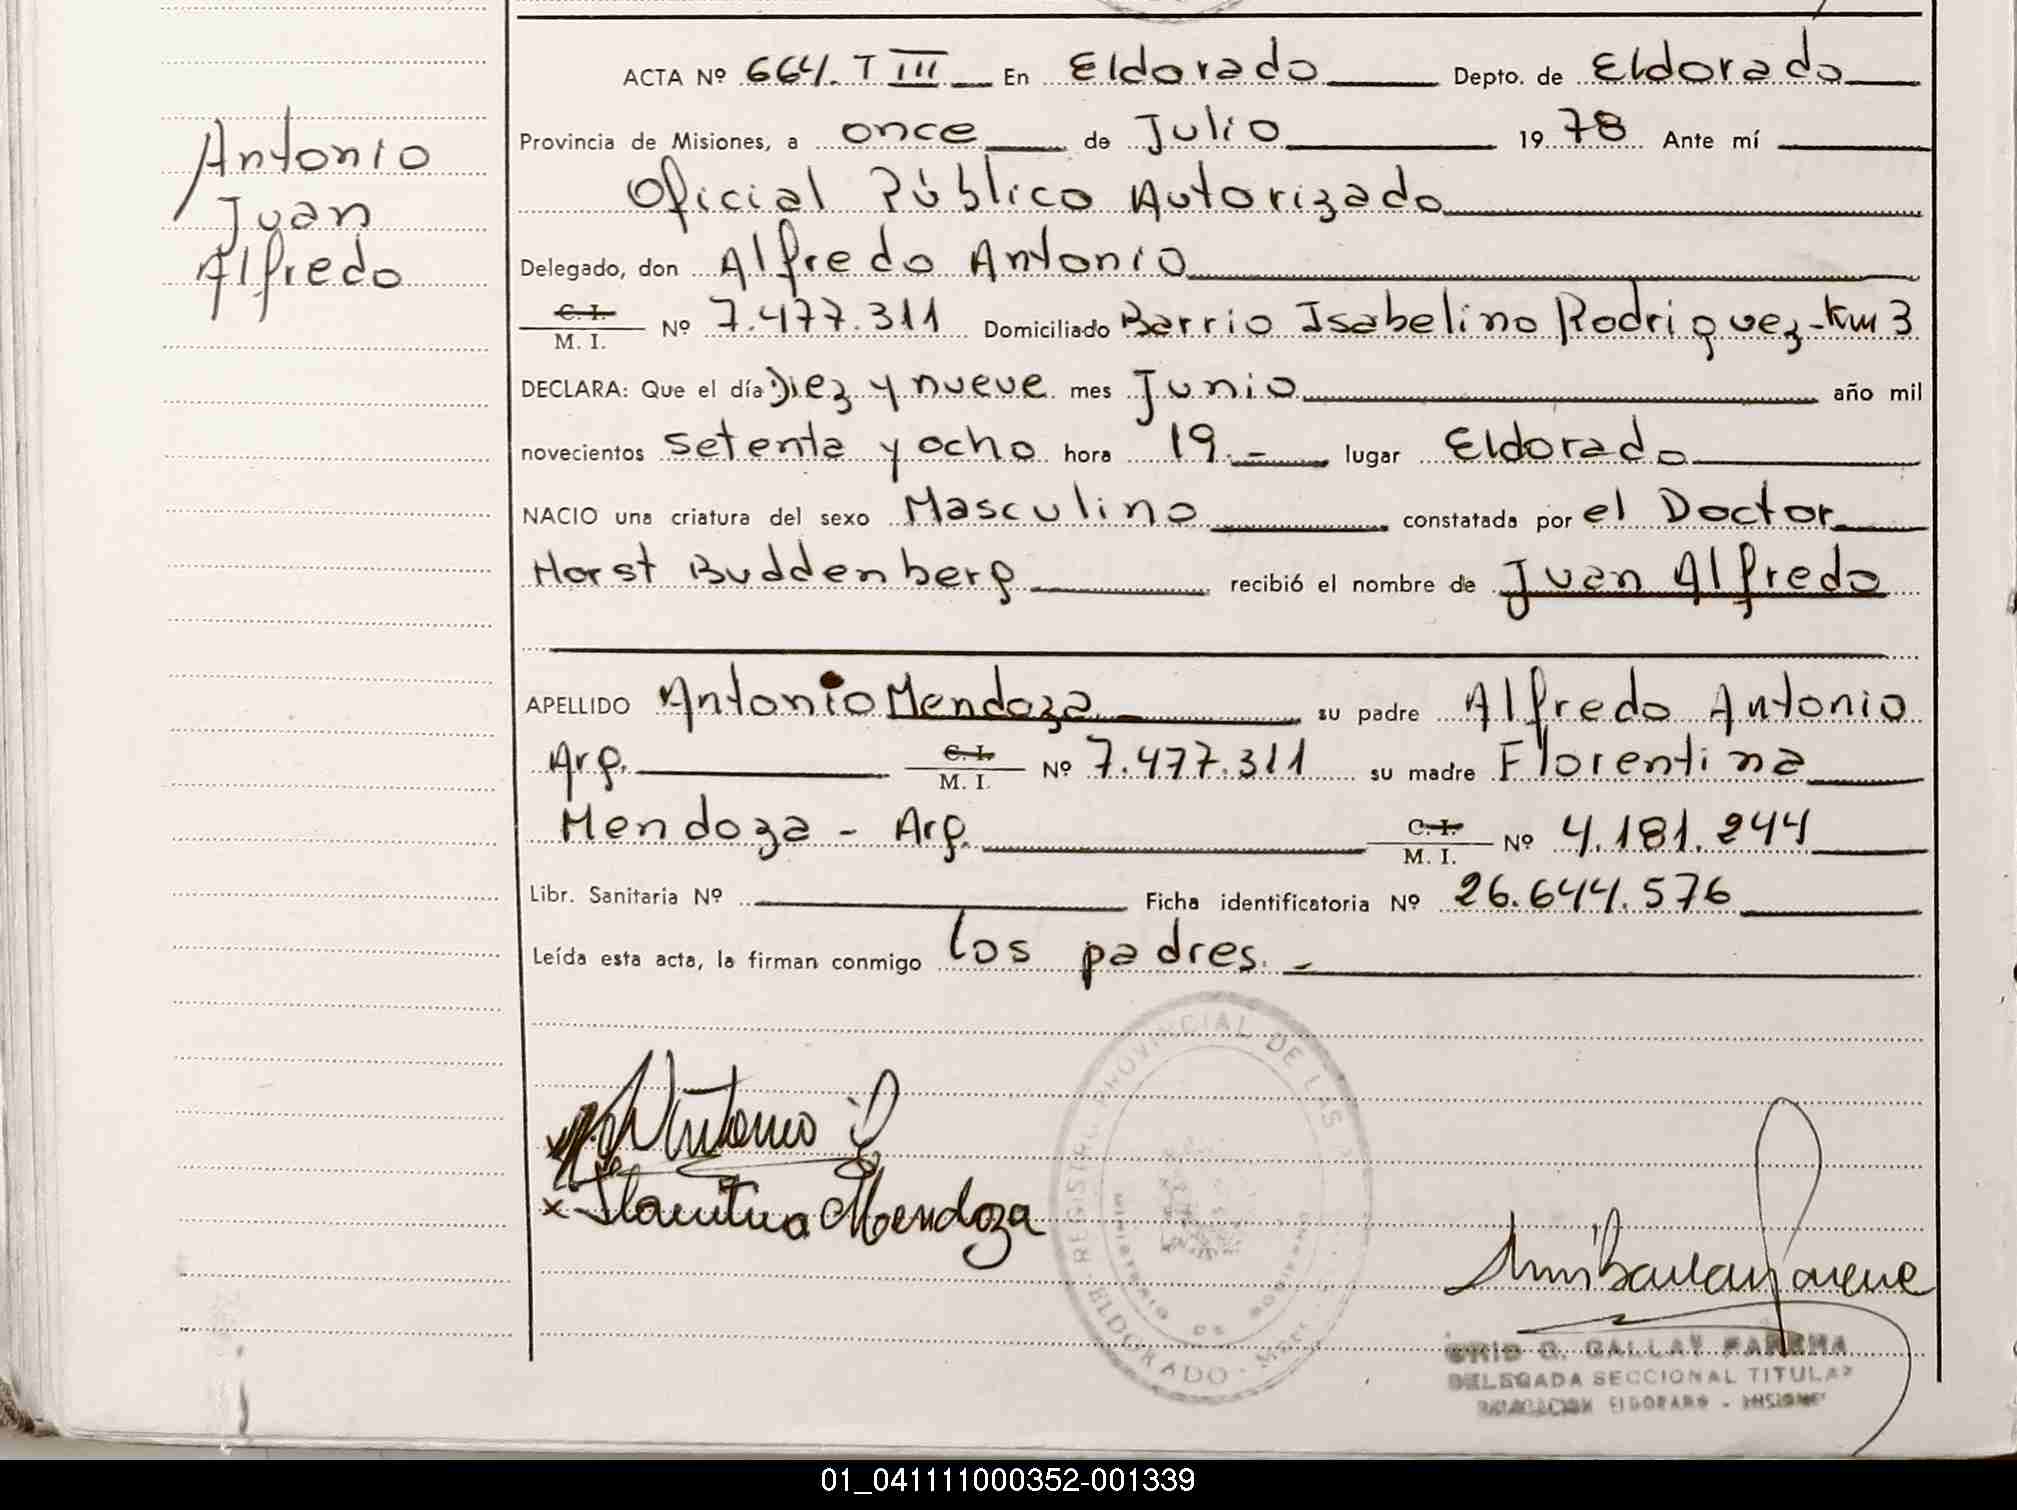 Antonio
Juan
Alfredo
ACTA Nº 664. T III En Eldorado Depto. de Eldorado
Provincia de Misiones, a once de Julio 1978 Ante mí
Oficial Público Autorizado
Delegado, don Alfredo Antonio
C. I.
M. I. Nº 7.477.311 Domiciliado Barrio Isabelino Rodriguez-Km 3
DECLARA: Que el día Diez y nueve mes Junio año mil
novecientos setenta y ocho hora 19.- lugar Eldorado
NACIO una criatura del sexo Masculino constatada por el Doctor
Horst Buddenberg recibió el nombre de Juan Alfredo
APELLIDO Antonio Mendoza su padre Alfredo Antonio
Arg. C. I. M. I. Nº 7.477.311 su madre Florentina
Mendoza - Arg. C. I. M. I. Nº 4.181.244
Libr. Sanitaria Nº Ficha identificatoria Nº 26.644.576
Leída esta acta, la firman conmigo los padres.-
REGISTRO PROVINCIAL DE LAS
MINISTERIO DE
ELDORADO
x Antonio
x Florentina Mendoza
G. GALLAY
DELEGADA SECCIONAL TITULAR
DELEGACION ELDORADO - MISIONES
01_041111000352-001339